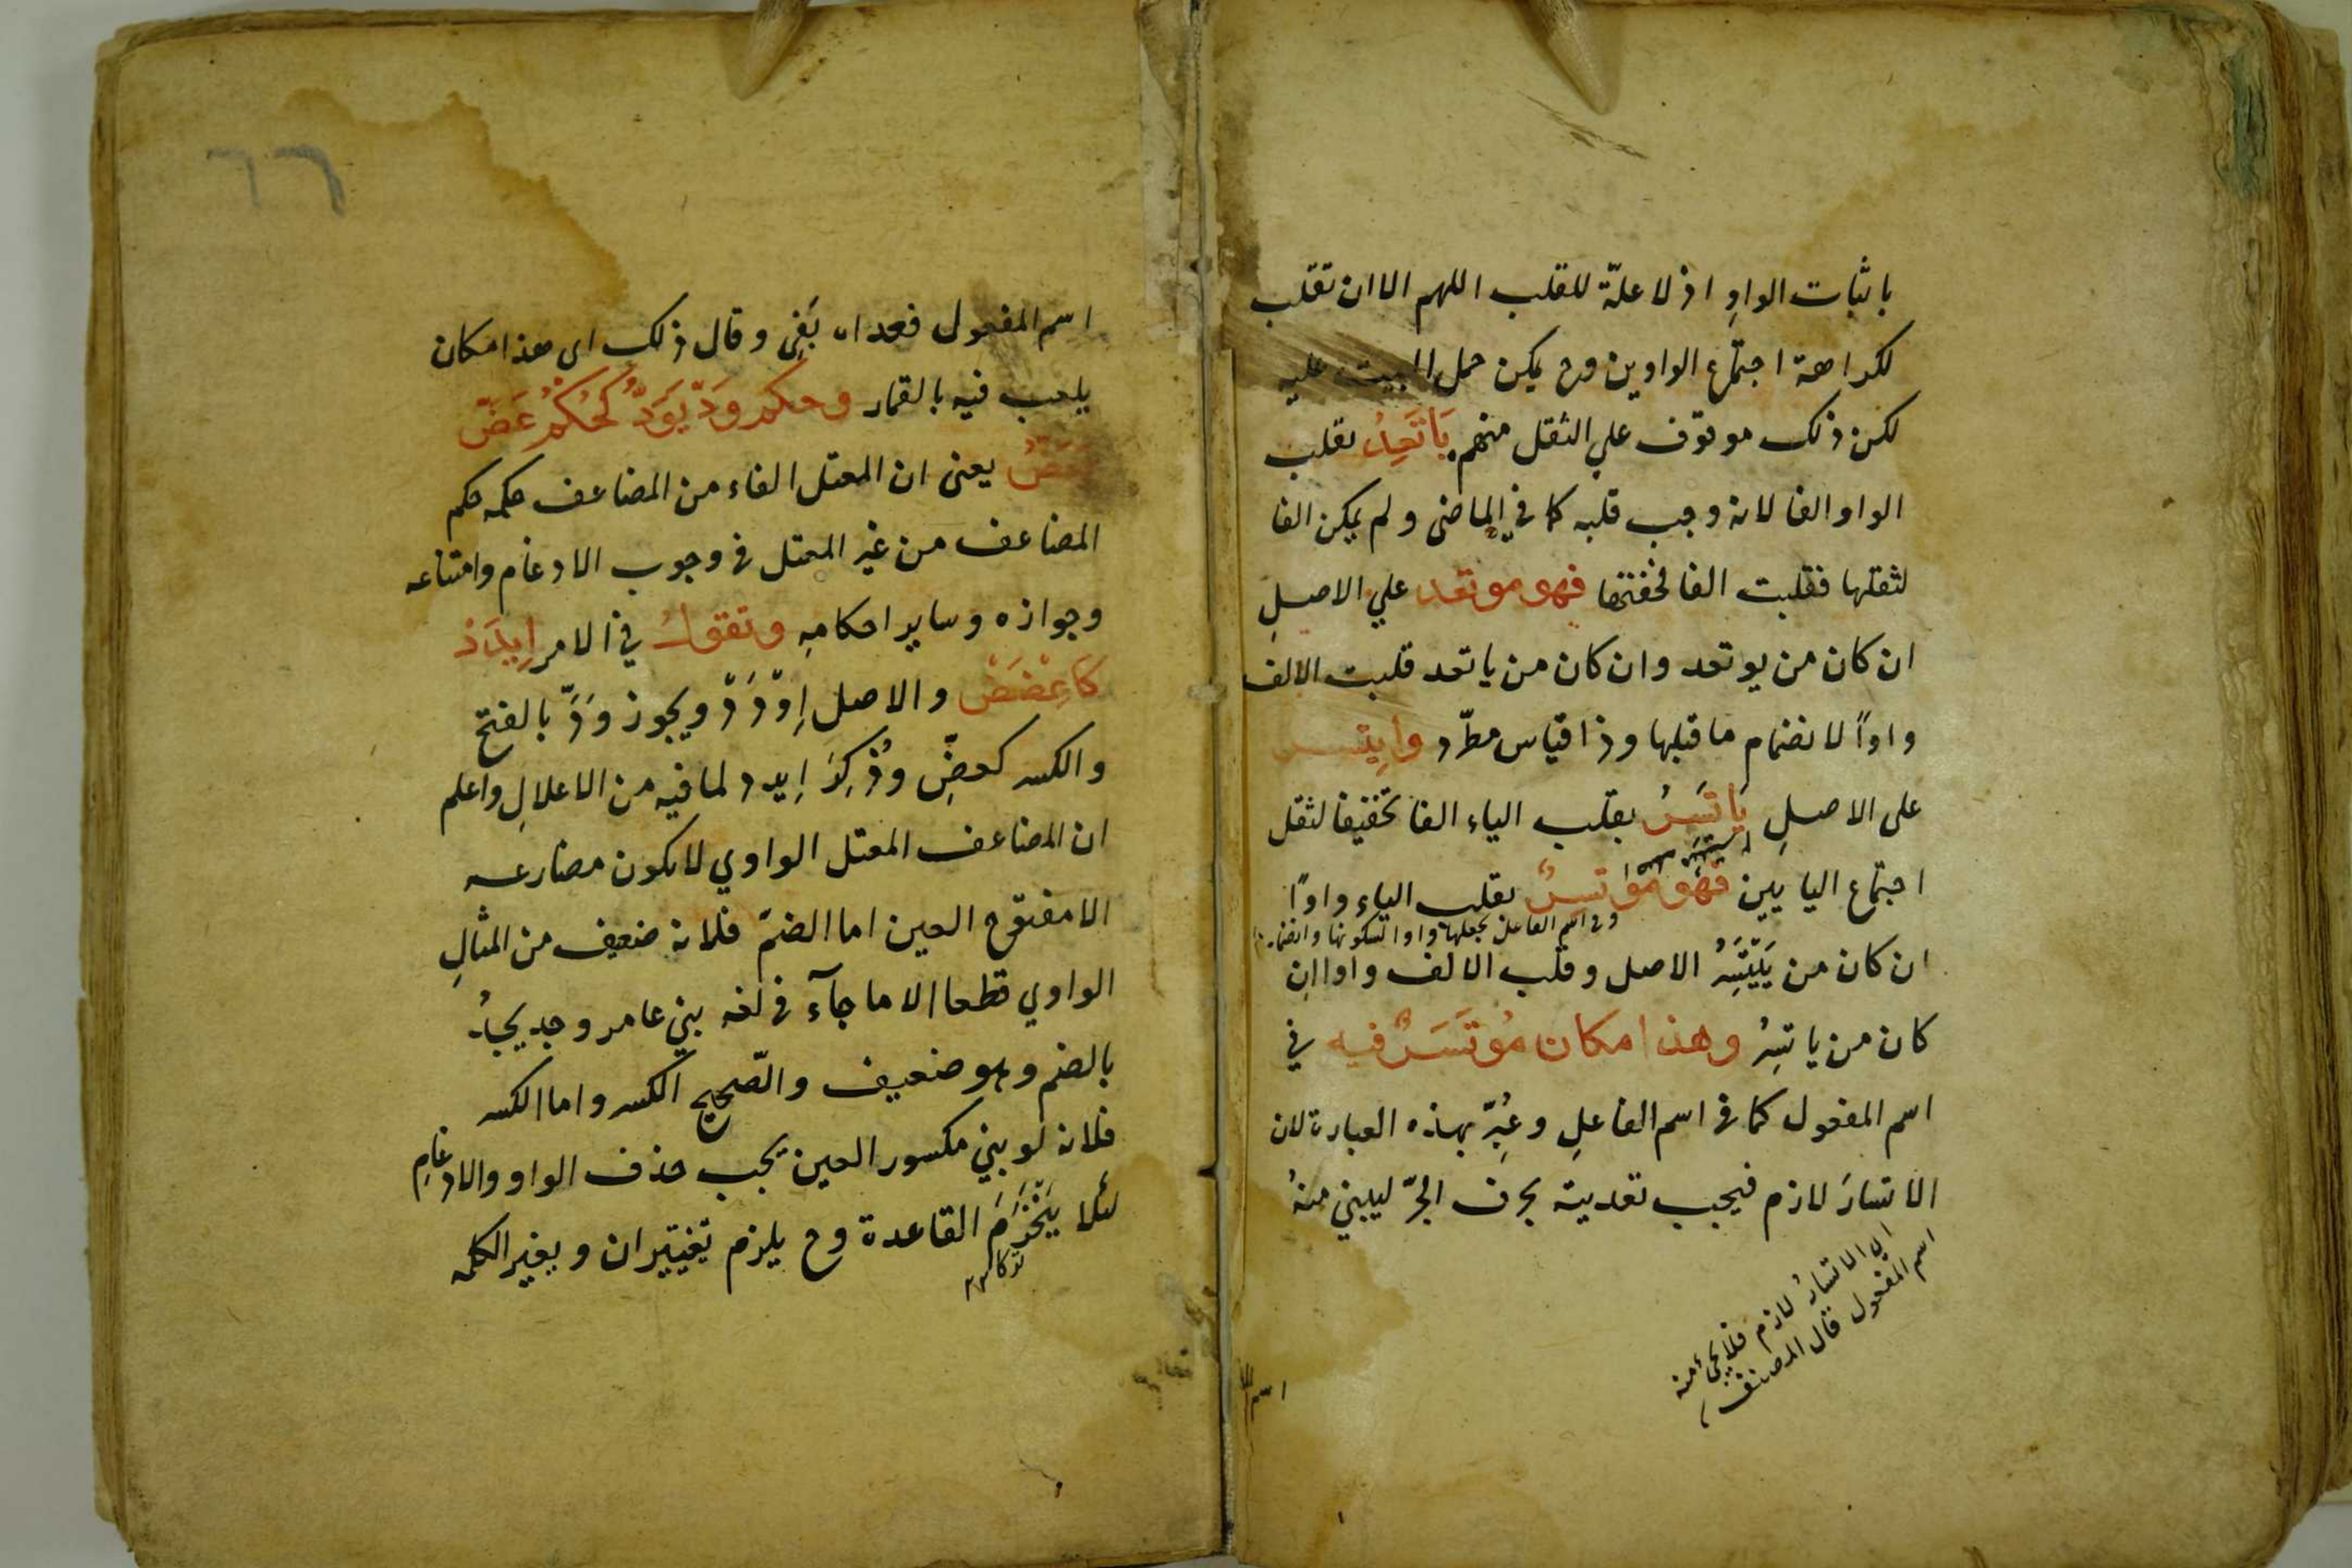 باثبات الواوِ اذ لا علّة للقلب اللهم الا ان تقلب
لكراهة اجتماع الواوين وح يمكن حمل البيت عليه
لكن ذلك موقوف علي الثقل منهم يَاتَعِدُ بقلب
الواو الفا لانه وجب قلبه كما في الماضى ولم يمكن الفا
لثقلها فقلبت الفا لخفتها فهو موتعد علي الاصلِ
ان كان من يوتعد وان كان من ياتعد قلبت الالف
واواً لانضمام ما قبلها وذا قياس مطّرد وايتسر
على الاصلِ يَاتَسِرُ بقلب الياء الفا تخفيفا لثقل
اجتماع اليايين فهو موتسرٌ بقلب الياء واوًا
وفى اسم الفاعل بجعلها واوا لسكونها وانضمام
ان كان من يَيْتَسِرُ الاصل وقلب الالف واوا ان
كان من ياتسِرُ وهذا مكان مُوتَسَرٌ فيه في
اسم المفعول كما فى اسم الفاعلِ وعُبِّر بهذه العبارة لان
الاتسارَ لازم فيجب تعديته بحرف الجرّ ليبني منهُ
اى الاتسارُ لازم فلا يجئ منه
اسم المفعول قال المصنف
اسم
٦٦
اسم المفعول فعداه بفى وقال ذلك اى هذا مكان
يلعب فيه بالقمار وحكم وَدّ يَوَدُّ كحُكْمِ عَضّ
يعضّ يعنى ان المعتل الفاء من المضاعف حكمه حكم
المضاعف من غير المعتل فى وجوب الادغام وامتناعه
وجوازه وساير احكامهِ وتقول في الامر اِيدَدْ
كاعْضَضْ والاصل اِوْدَدْ ويجوز وَدَّ بالفتح
والكسر كعضّ وذُكِرَ اِيدد لما فيه من الاعلالِ واعلم
ان المضاعف المعتل الواوي لا يكون مضارعه
الا مفتوح العين اما الضمّ فلانه ضعيف من المثالِ
الواوي قطعا الا ما جآء فى لغه بني عامر وجد يجدُ
بالضم وهو ضعيف والصّحيح الكسر واما الكسر
فلانه لو بني مكسور العين يجب حذف الواو والادغامِ
لئلا يَنْخَرِمَ القاعدة وح يلزم تغييران ويغير الكلمه